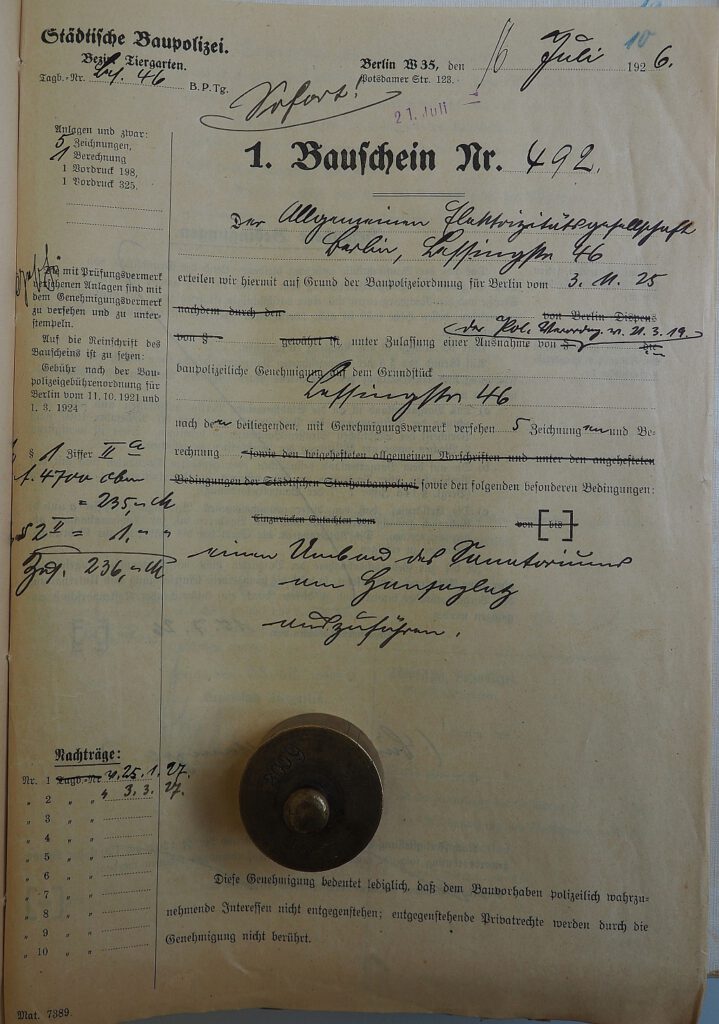 Städtische Baupolizei.
Bezirk Tiergarten.
Tagb.-Nr. 46 B.P.Tg.
Berlin W 35, den 16 Juli 1926.
Potsdamer Str. 123.
10
Sofort!
21. Juli
Anlagen und zwar:
5 Zeichnungen,
1 Berechnung
1 Vordruck 198,
1 Vordruck 325.
1. Bauschein Nr. 492.
Der Allgemeinen Elektrizitätsgesellschaft
Berlin, Lessingstr 46
erteilen wir hiermit auf Grund der Baupolizeiordnung für Berlin vom 3. 11. 25
nachdem durch den von Berlin Dispens
(der Pol. Verordng. v. 21. 3. 19.)
von § gewährt ist, unter Zulassung einer Ausnahme von § die
baupolizeiliche Genehmigung auf dem Grundstück
Lessingstr 46
nach den beiliegenden, mit Genehmigungsvermerk versehen 5 Zeichnungen und Be-
rechnung, sowie den beigehefteten allgemeinen Vorschriften und unter den angehefteten
Bedingungen der Städtischen Straßenbaupolizei sowie den folgenden besonderen Bedingungen:
Einzurücken Gutachten vom von [bis]
einen Umbau des Sanatoriums
am Hansaplatz
auszuführen.
Die mit Prüfungsvermerk
versehenen Anlagen sind mit
dem Genehmigungsvermerk
zu versehen und zu unter-
stempeln.
Auf die Reinschrift des
Bauscheins ist zu setzen:
Gebühr nach der Bau-
polizeigebührenordnung für
Berlin vom 11. 10. 1921 und
1. 3. 1924
§ 1 Ziffer II a
f. 4700 cbm
= 235,- M
§ 2 II = 1,- "
Zus. 236,- M
Nachträge:
Nr. 1 Tagb.-Nr v. 25. 1. 27.
" 2 " " " 3. 3. 27.
" 3 " "
" 4 " "
" 5 " "
" 6 " "
" 7 " "
" 8 " "
" 9 " "
" 10 " "
2009
Diese Genehmigung bedeutet lediglich, daß dem Bauvorhaben polizeilich wahrzu-
nehmende Interessen nicht entgegenstehen; entgegenstehende Privatrechte werden durch die
Genehmigung nicht berührt.
Mat. 7389.